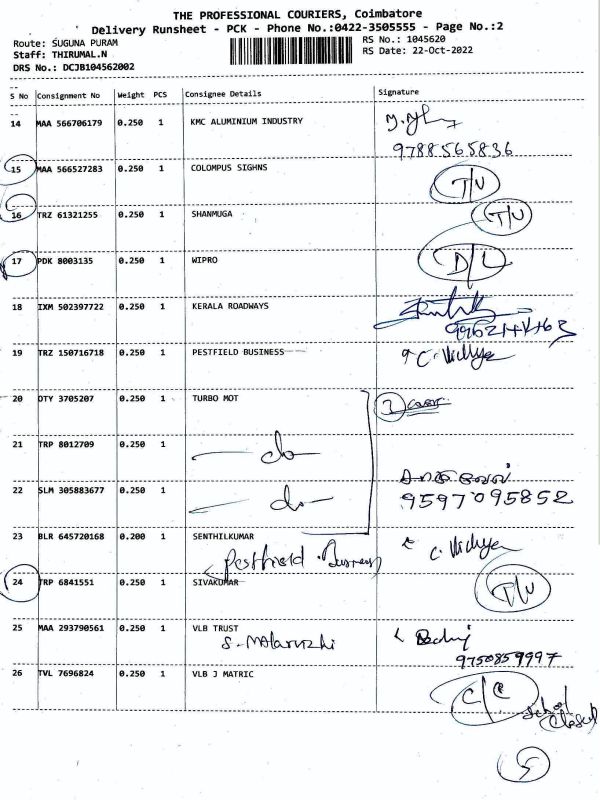 THE PROFESSIONAL COURIERS, Coimbatore
Delivery Runsheet - PCK - Phone No.:0422-3505555 - Page No.:2
Route: SUGUNA PURAM RS No.: 1045620
Staff: THIRUMAL.N RS Date: 22-Oct-2022
DRS No.: DCJB104562002
S No Consignment No Weight PCS Consignee Details Signature
14 MAA 566706179 0.250 1 KMC ALUMINIUM INDUSTRY
9788565836
15 MAA 566527283 0.250 1 COLOMPUS SIGHNS T/U
16 TRZ 61321255 0.250 1 SHANMUGA T/U
17 PDK 8003135 0.250 1 WIPRO D/L
18 IXM 502397722 0.250 1 KERALA ROADWAYS
19 TRZ 150716718 0.250 1 PESTFIELD BUSINESS C. Vidhya
20 OTY 3705207 0.250 1 TURBO MOT 3 cover
21 TRP 8012709 0.250 1 - do -
22 SLM 305883677 0.250 1 - do -
9597095852
23 BLR 645720168 0.200 1 SENTHILKUMAR C. Vidhya
Pestfield Business
24 TRP 6841551 0.250 1 SIVAKUMAR T/U
25 MAA 293790561 0.250 1 VLB TRUST
S. Malarvizhi
9750859997
26 TVL 7696824 0.250 1 VLB J MATRIC C/C
School
Closed
5